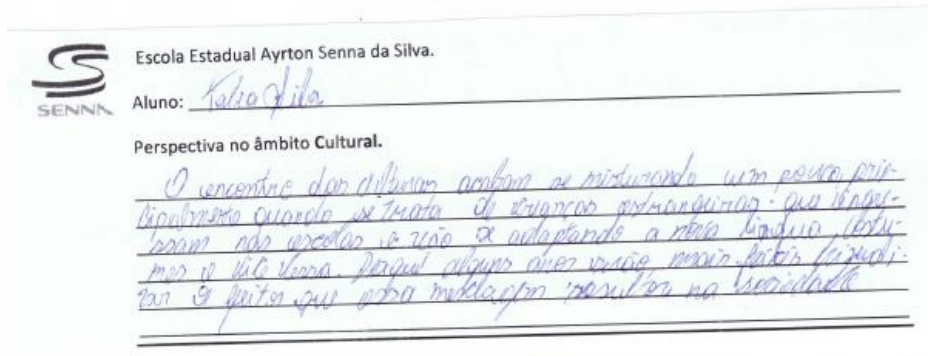 Escola Estadual Ayrton Senna da Silva.
SENNA
Aluno: Silva
Perspectiva no âmbito Cultural.
O encontro das culturas acabam se misturando um pouco, prin-
cipalmente quando se trata de crianças estrangeiras que ingre-
ssam nas escolas e vão se adaptando a nova língua, costu-
mes e vice versa. Daqui alguns anos será mais visualiza-
zar que essa mesclagem resultou na sociedade